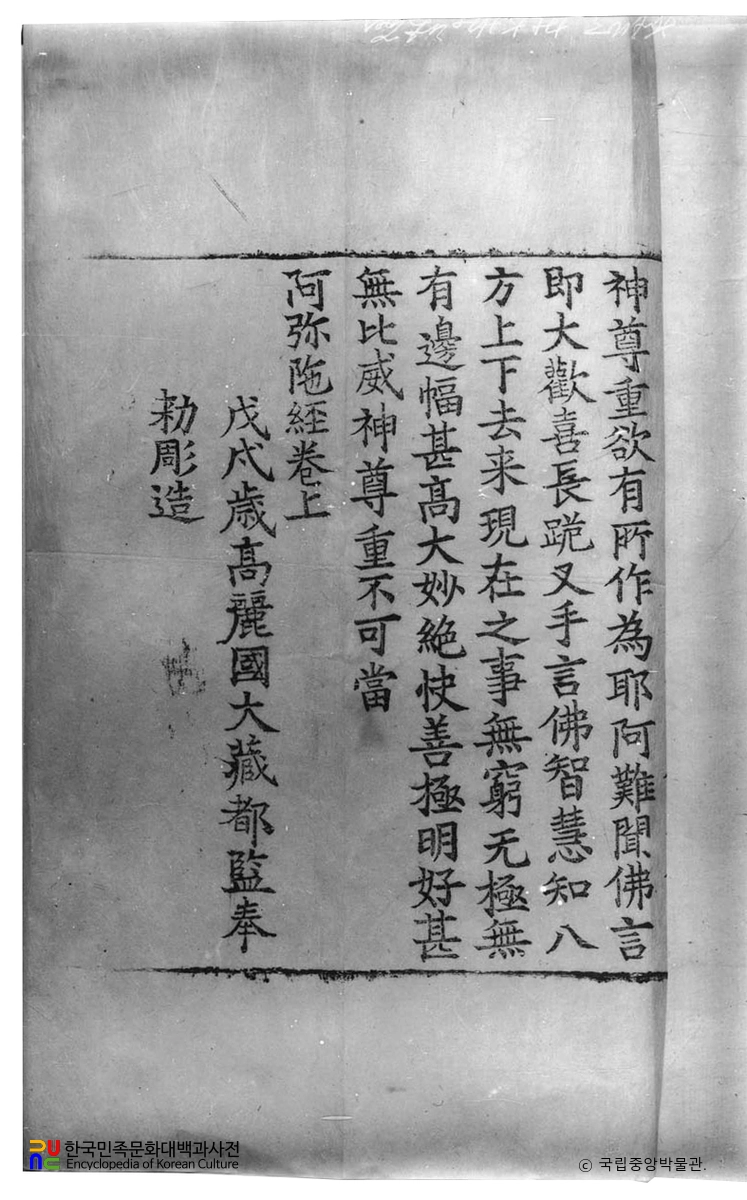 神尊重欲有所作為耶阿難聞佛言
即大歡喜長跪叉手言佛智慧知八
方上下去来現在之事無窮无極無
有邊幅甚高大妙絶快善極明好甚
無比威神尊重不可當
阿弥陁経巻上
戊戌歳高麗國大藏都監奉
勑彫造
한국민족문화대백과사전
Encyclopedia of Korean Culture
© 국립중앙박물관.